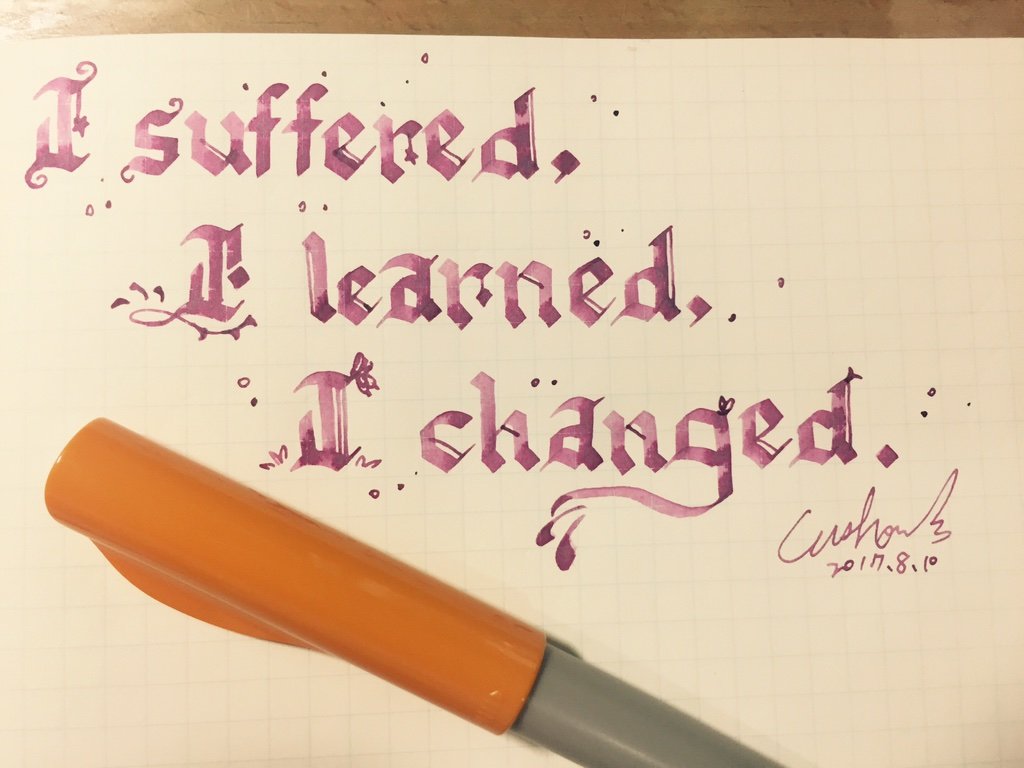 I suffered,
I learned,
I changed.
2017.8.10